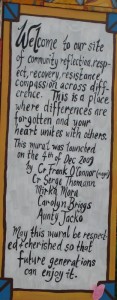 Welcome to our site
of community reflection, resp-
ect, recovery, resistance,
compassion across diff-
erence. This is a place
where differences are
forgotten and your
heart unites with others.
This mural was launched
on the 4th of Dec 2009
by Cr Frank O'Connor (mayor)
Cr Serge Thomann
Mirka Mora
Carolyn Briggs
Aunty Jacko
May this mural be respect-
ed + cherished so that
future generations
can enjoy it.